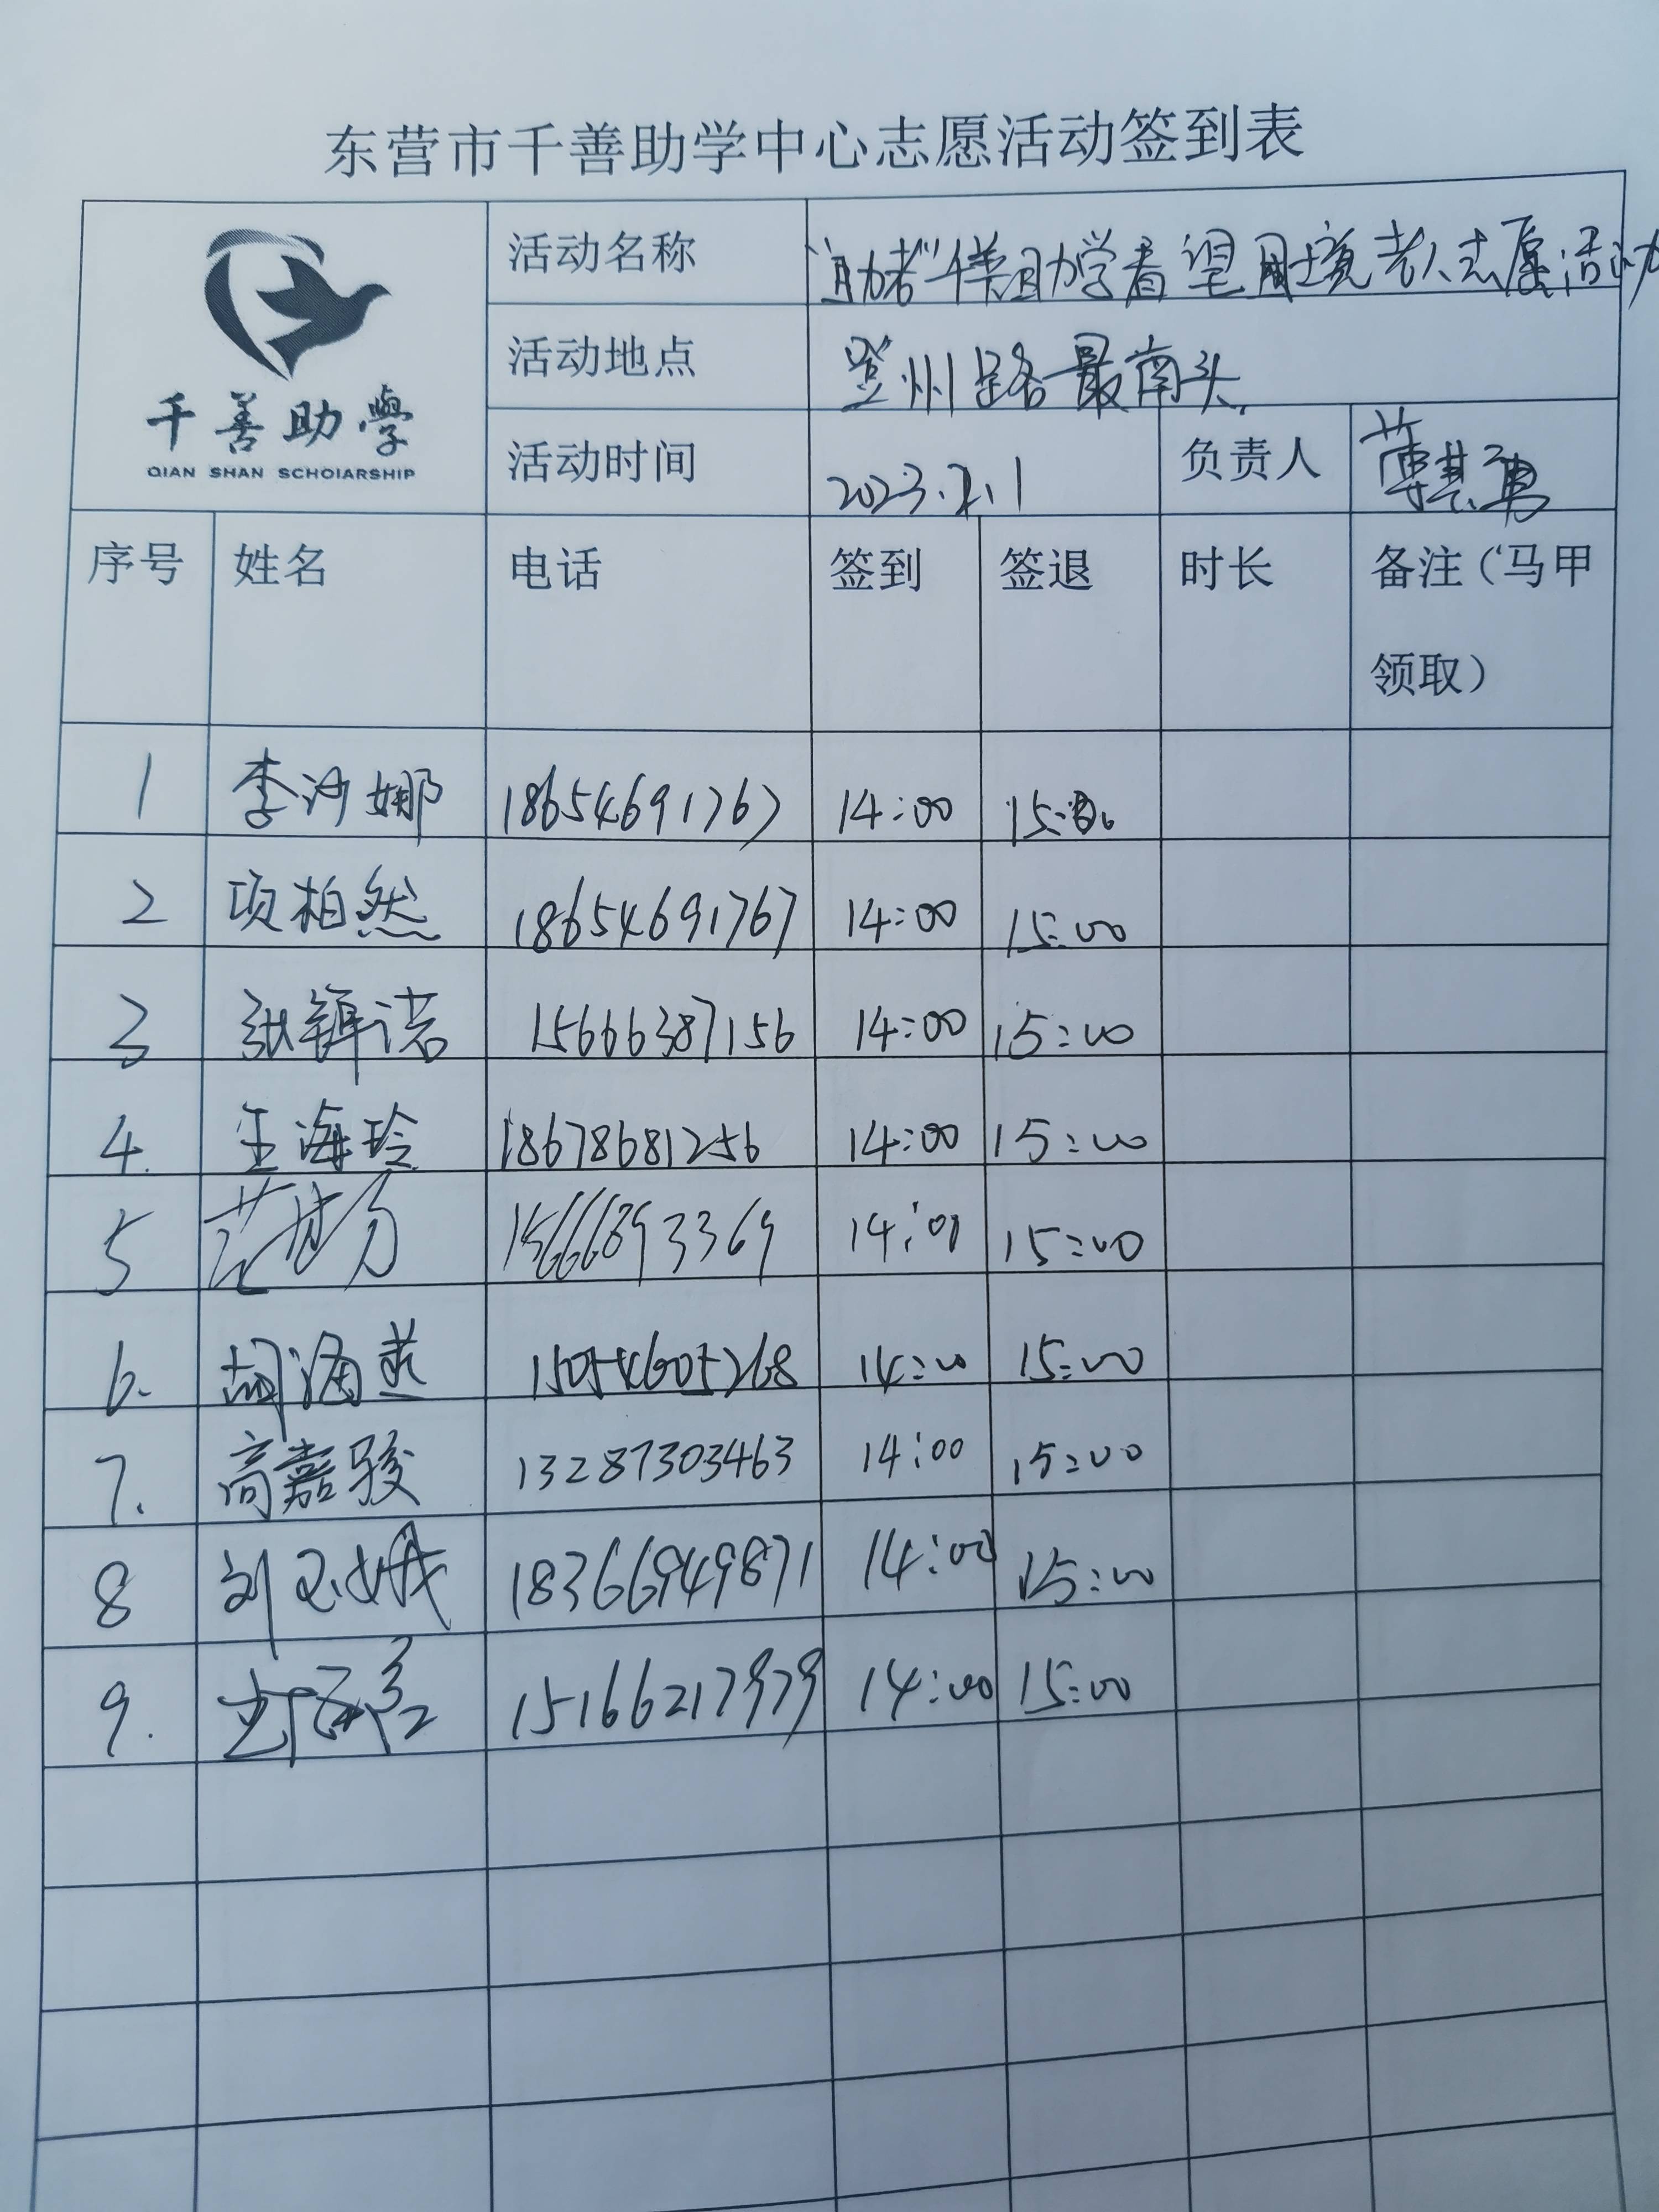 东营市千善助学中心志愿活动签到表
千善助學
QIAN SHAN SCHOlARSHIP
活动名称 "自助者"千善助学看望困境老人志愿活动
活动地点 登州路最南头
活动时间 2023.2.1 负责人 薄其勇
序号 姓名 电话 签到 签退 时长 备注（马甲
领取）
1 李沙娜 18654691767 14:00 15:00
2 项柏然 18654691767 14:00 15:00
3 张镡诺 15666387156 14:00 15:00
4. 王海玲 18678681256 14:00 15:00
5 15666893369 14:00 15:00
6. 胡海燕 15054605268 14:00 15:00
7. 高嘉骏 13287303463 14:00 15:00
8 刘玉娥 18366949871 14:00 15:00
9. 15166217979 14:00 15:00